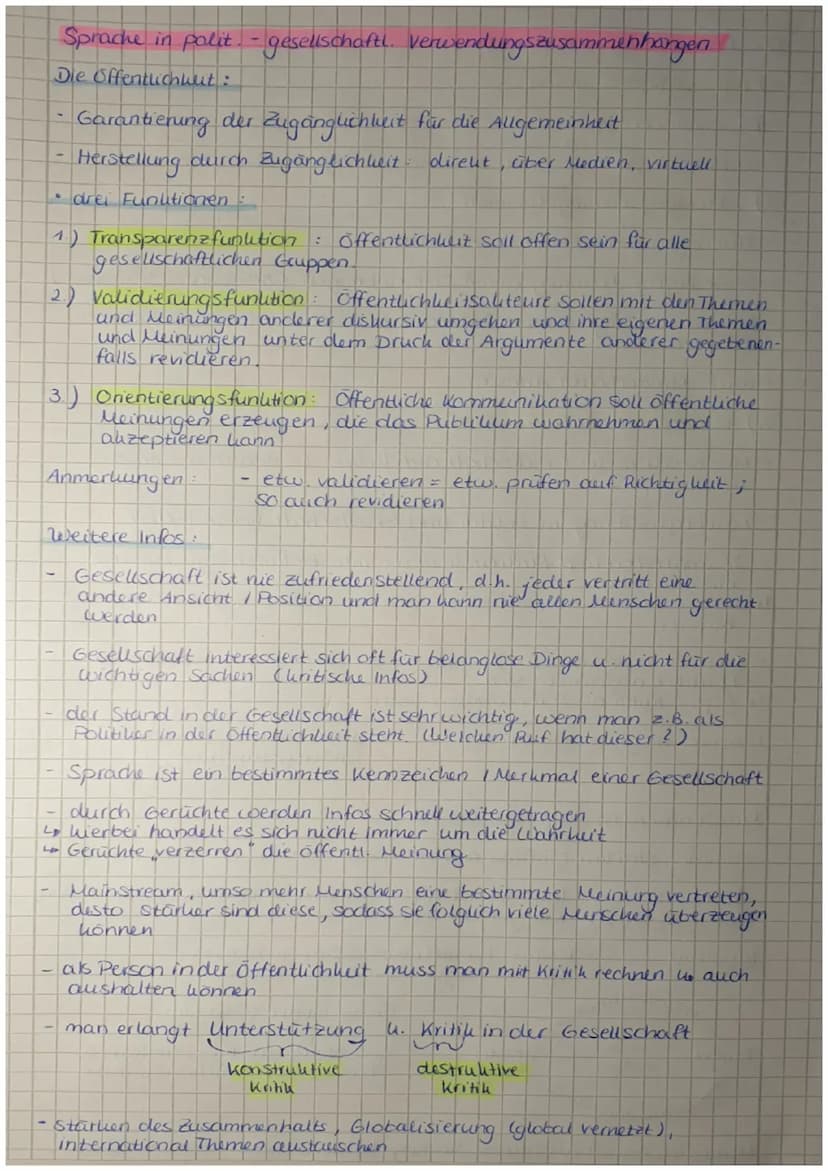 Sprache in polit. - gesellschaftl. Verwendungszusammenhängen
Die Öffentlichkeit :
- Garantierung der Zugänglichkeit für die Allgemeinheit
- Herstellung durch Zugänglichkeit: direkt, über Medien, virtuell
• drei Funktionen :
1) Transparenzfunktion : Öffentlichkeit soll offen sein für alle
gesellschaftlichen Gruppen.
2.) Validierungsfunktion : Öffentlichkeitsakteure sollen mit den Themen
und Meinungen anderer diskursiv umgehen und ihre eigenen Themen
und Meinungen unter dem Druck der Argumente anderer gegebenen-
falls revidieren.
3.) Orientierungsfunktion : Öffentliche Kommunikation soll öffentliche
Meinungen erzeugen, die das Publikum wahrnehmen und
akzeptieren kann.
Anmerkungen : - etw. validieren = etw. prüfen auf Richtigkeit ;
so auch revidieren
Weitere Infos :
- Gesellschaft ist nie zufriedenstellend, d.h. jeder vertritt eine
andere Ansicht / Position und man kann nie allen Menschen gerecht
werden
- Gesellschaft interessiert sich oft für belanglose Dinge u. nicht für die
wichtigen Sachen (kritische Infos)
- der Stand in der Gesellschaft ist sehr wichtig, wenn man z.B. als
Politiker in der Öffentlichkeit steht. (Welchen Ruf hat dieser?)
- Sprache ist ein bestimmtes Kennzeichen / Merkmal einer Gesellschaft
- durch Gerüchte werden Infos schnell weitergetragen
↳ hierbei handelt es sich nicht immer um die Wahrheit
↳ Gerüchte „verzerren" die öffentl. Meinung
- Mainstream, umso mehr Menschen eine bestimmte Meinung vertreten,
desto stärker sind diese, sodass sie folglich viele Menschen überzeugen
können
- als Person in der Öffentlichkeit muss man mit Kritik rechnen u. auch
aushalten können
- man erlangt Unterstützung u. Kritik in der Gesellschaft
konstruktive destruktive
Kritik Kritik
- stärken des Zusammenhalts, Globalisierung (global vernetzt),
international Themen austauschen